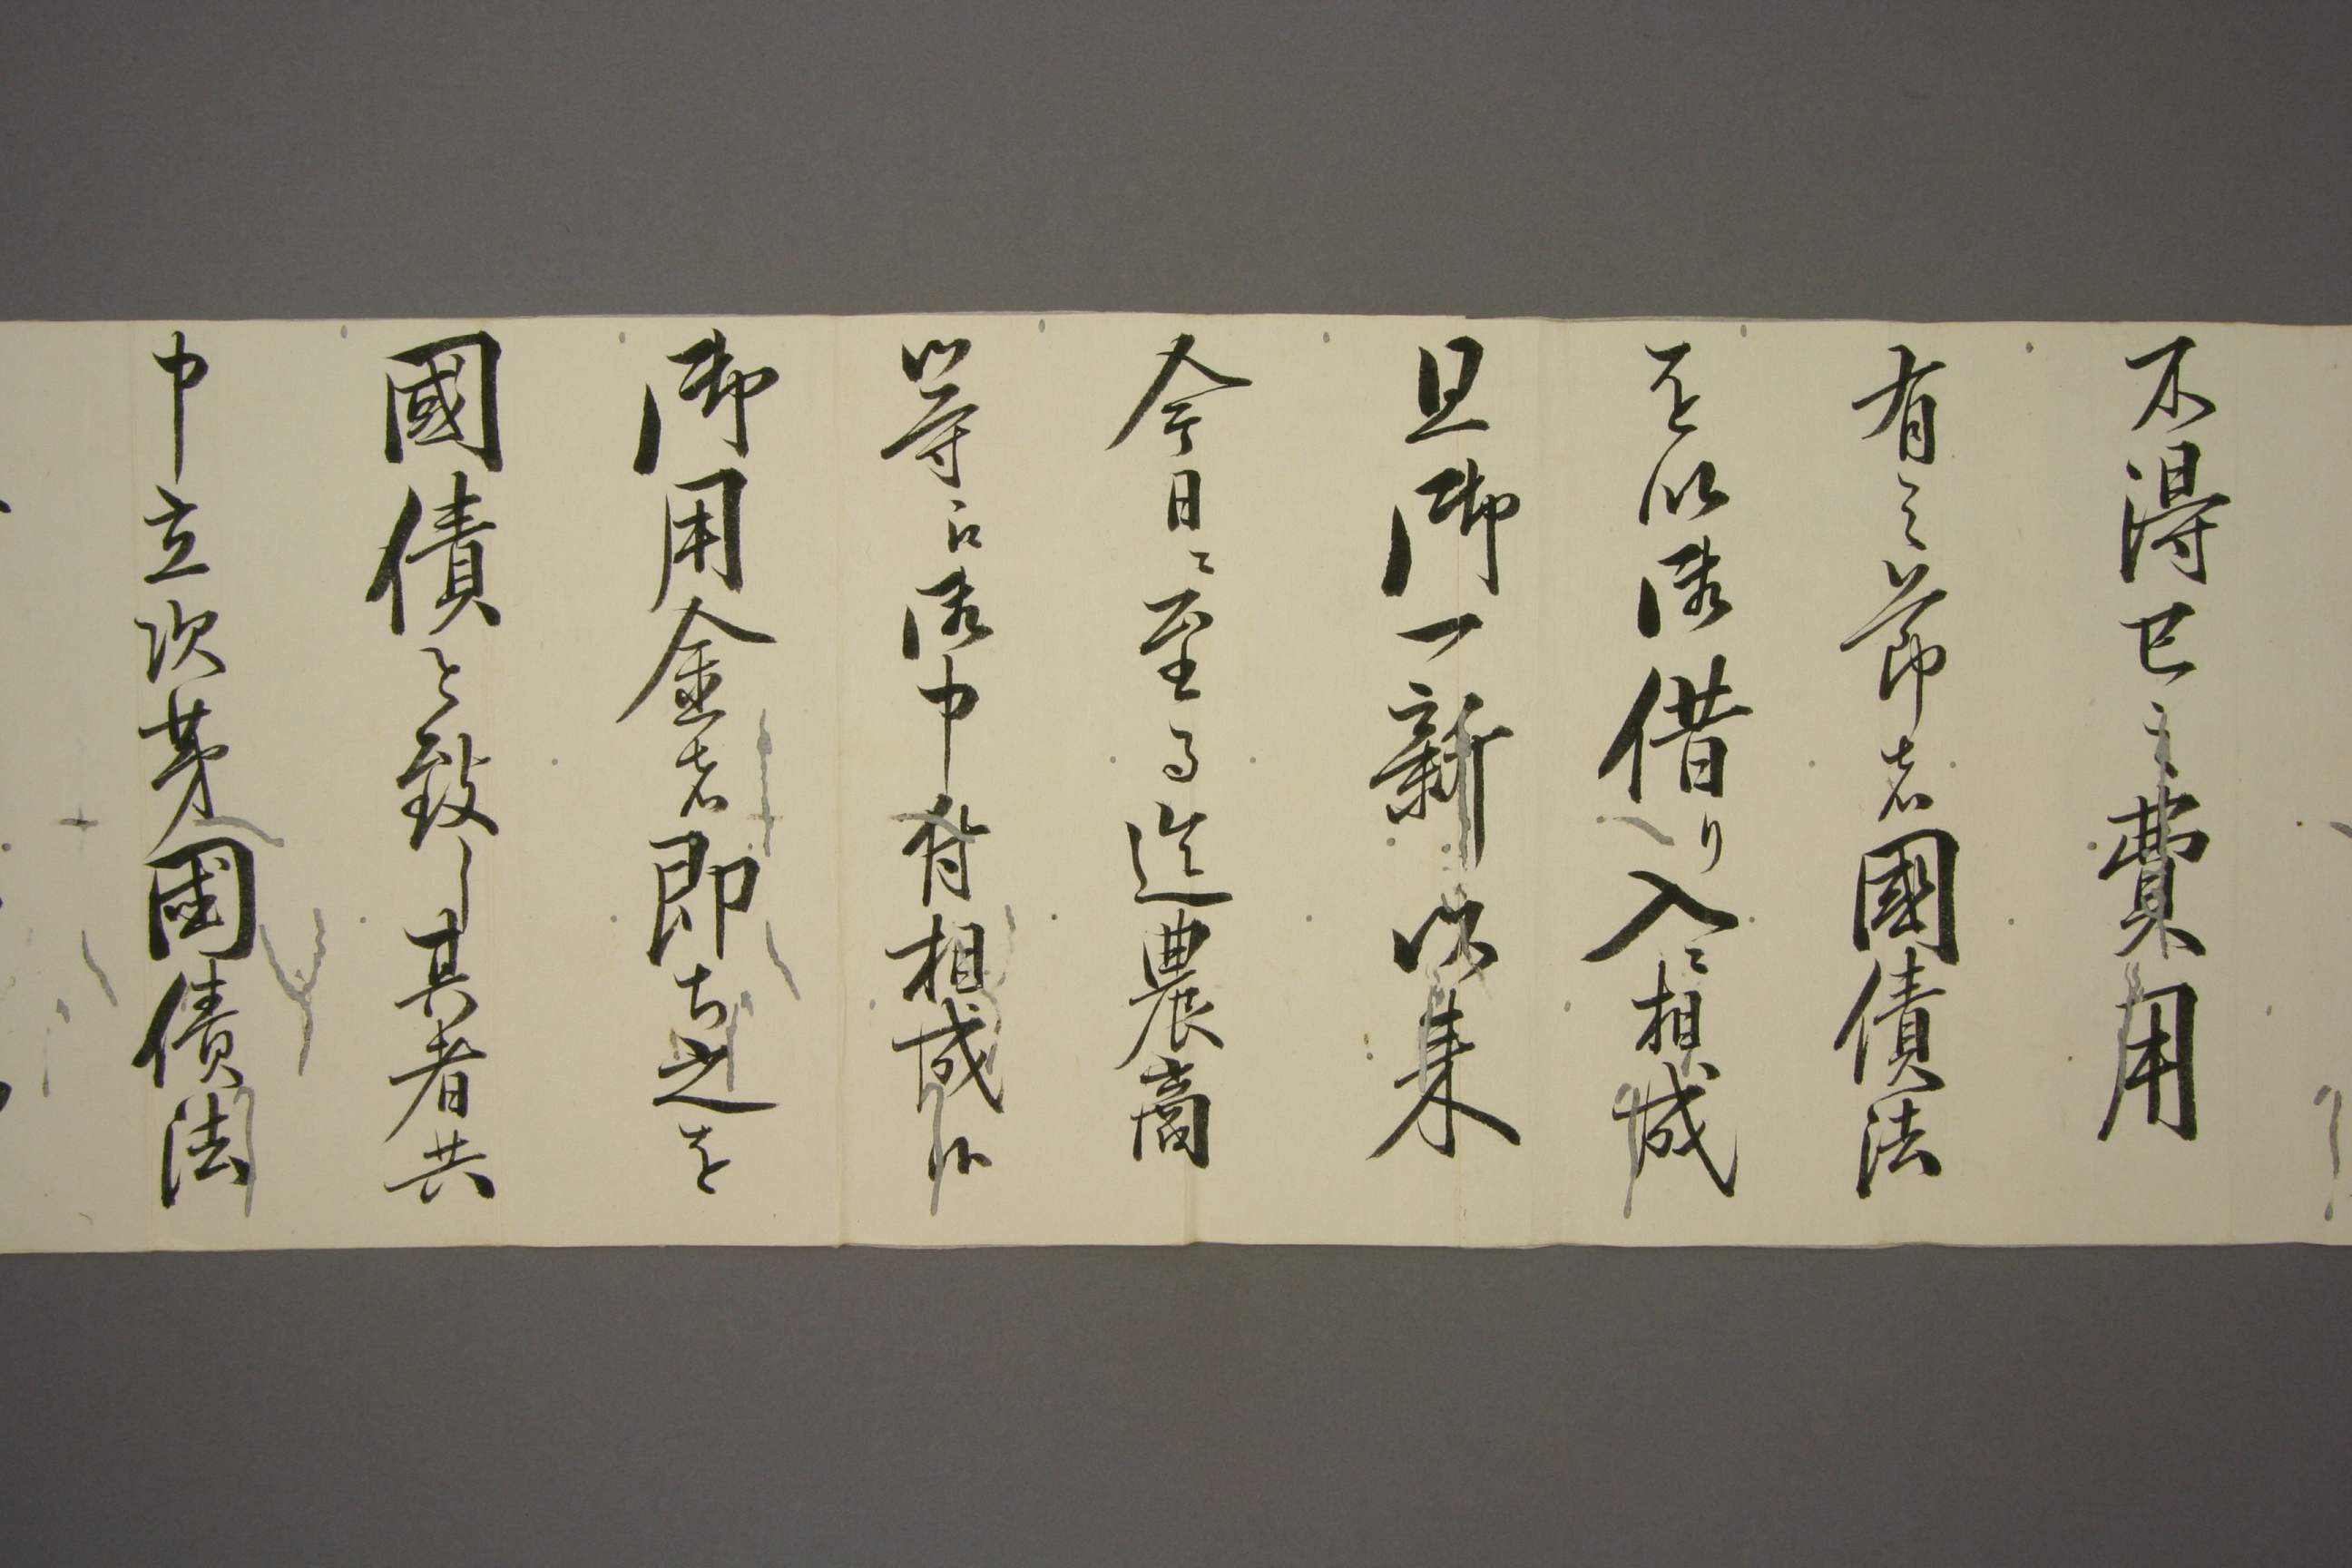 不得已之費用
有之節者國債法
を以御借り入ニ相成
且御一新以来
今日ニ至る迄農商
等江御申付相成候
御用金者即ち之を
國債と致し其者共
申立次第國債法